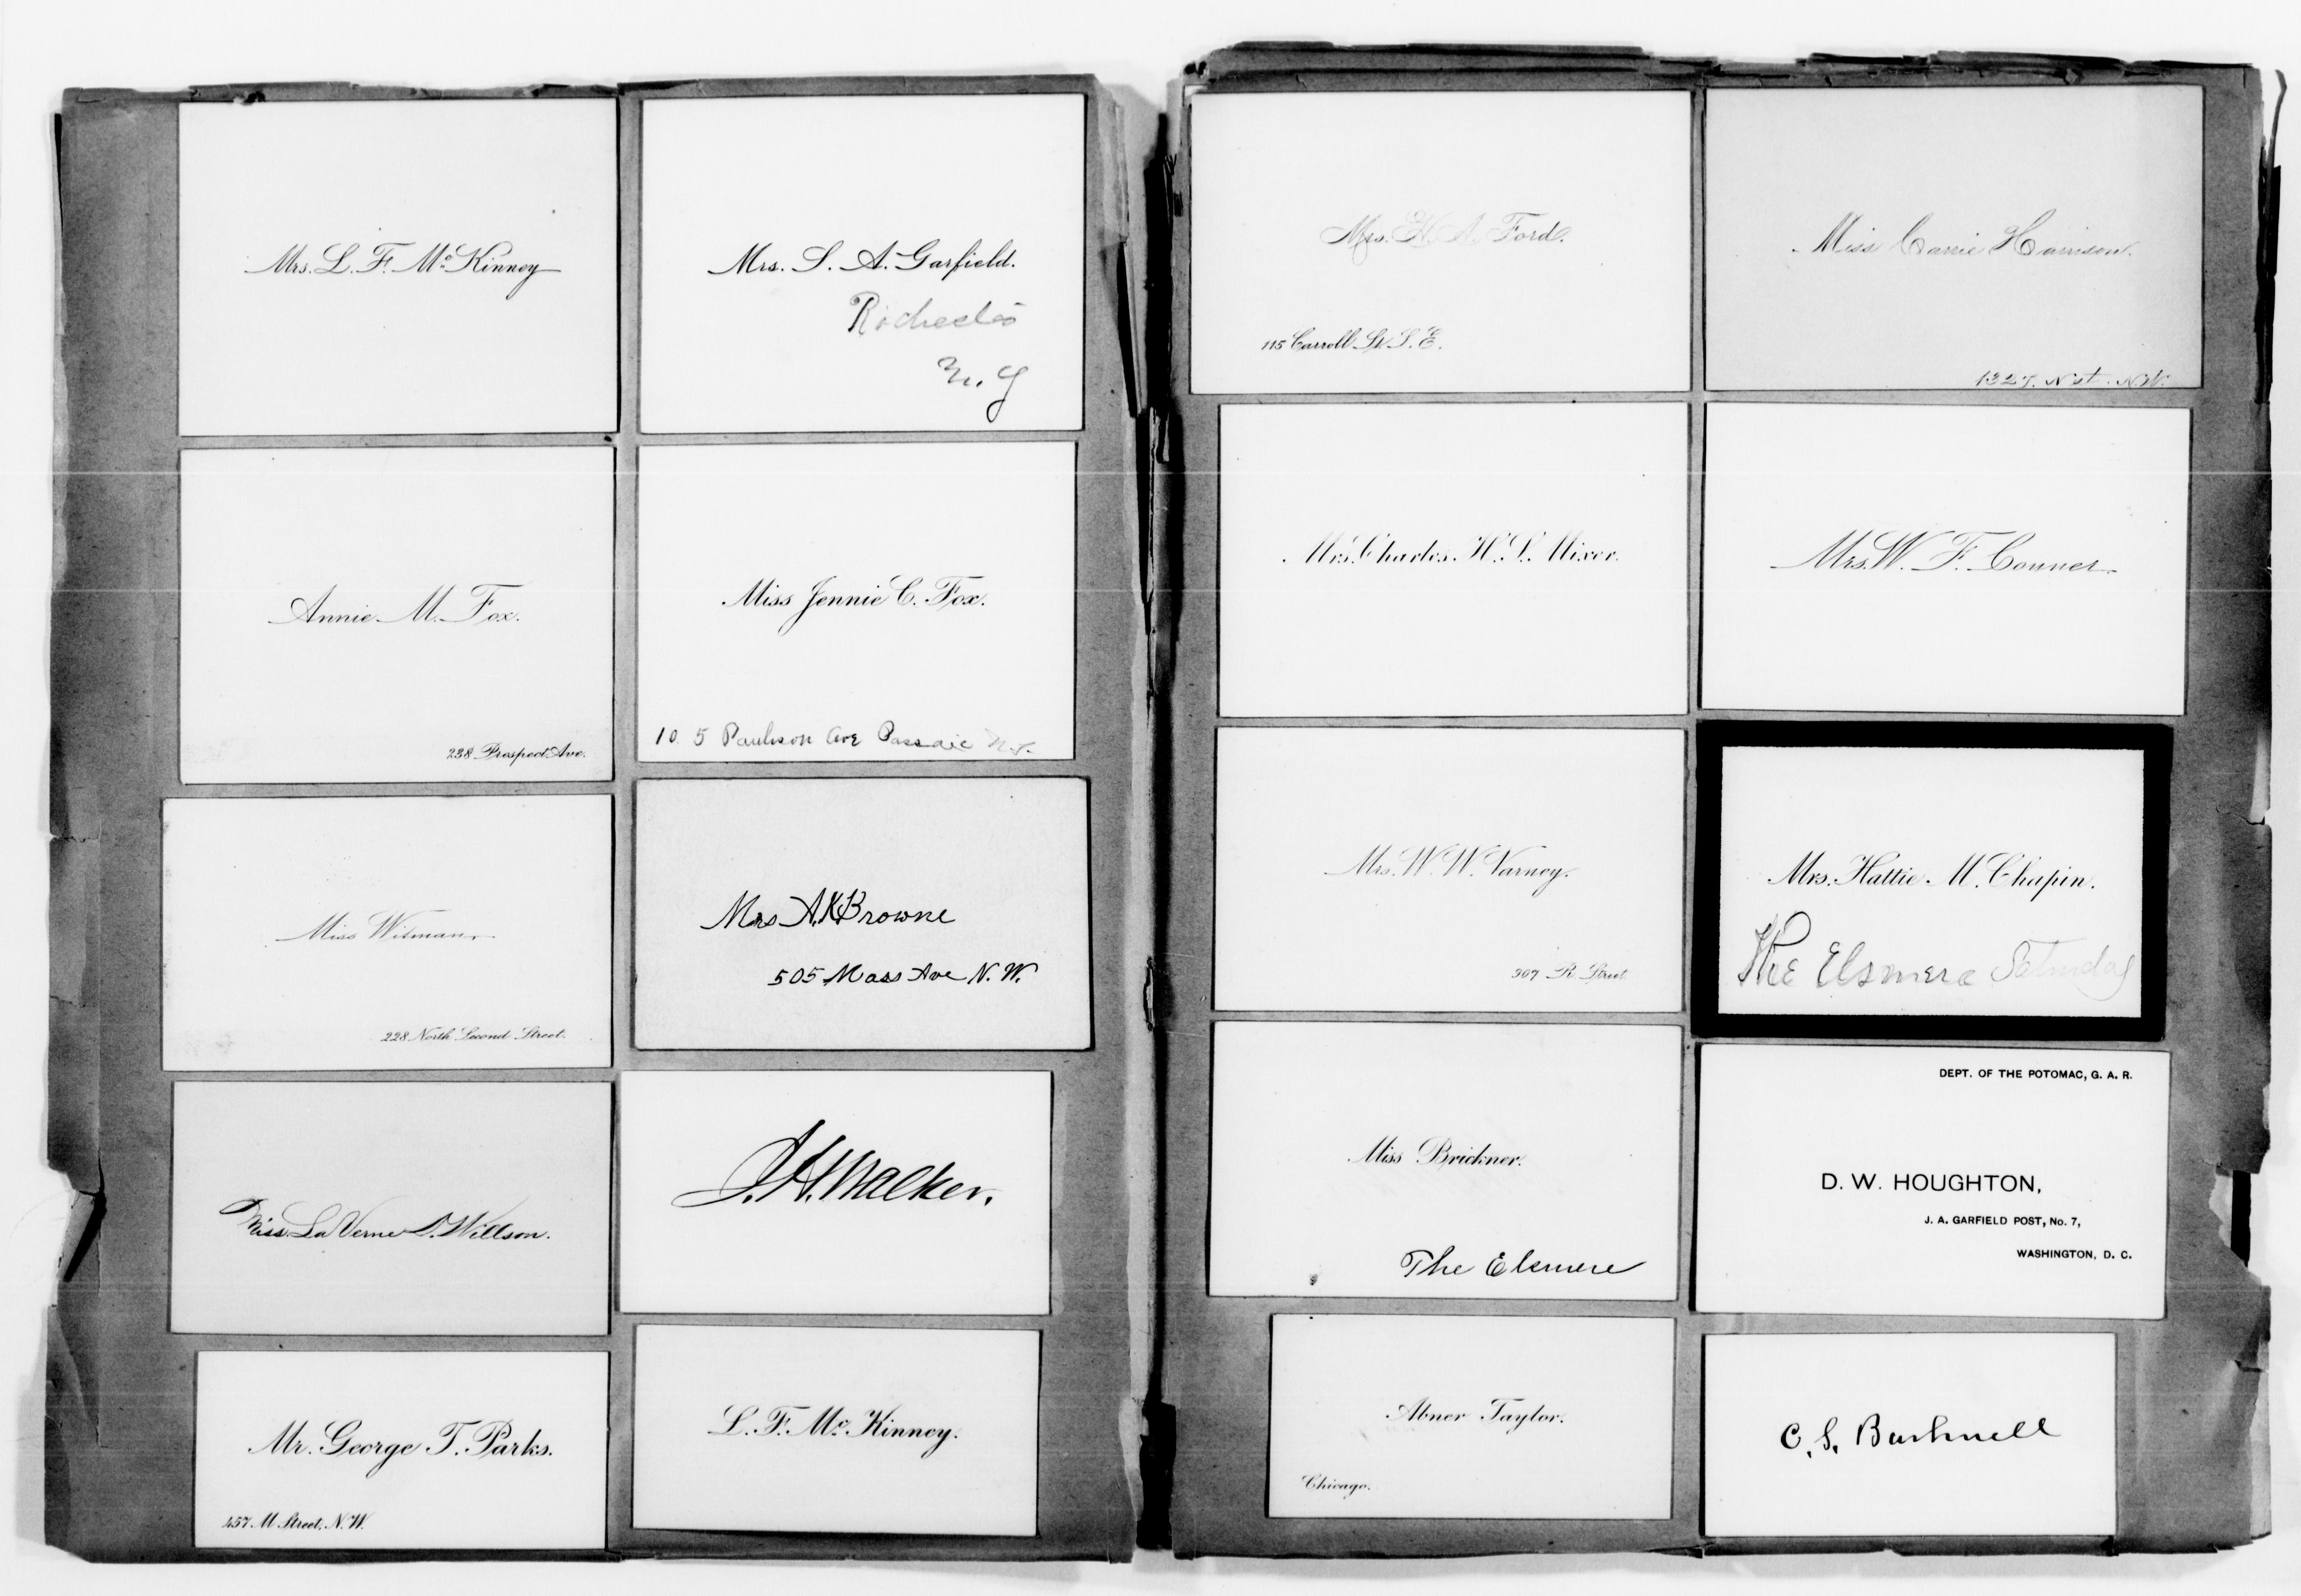 Mrs. L. F. McKinney
Mrs. S. A. Garfield.
Rochester
N. Y
Annie M. Fox.
238 Prospect Ave.
Miss Jennie C. Fox.
10 5 Paulison Ave Passaic N.J.
Miss Witman.
228 North Second Street.
Mrs A.K Browne
505 Mass Ave N. W.
Miss La Verne Willson.
J. H. Walker.
Mr. George T. Parks.
457 M Street, N.W.
L. F. McKinney.
Mrs. H. A. Ford.
115 Carroll St. S. E.
Miss Carrie Harrison.
1327. N st. N.W.
Mrs. Charles. H. S. Mixer.
Mrs. W. F. Conner.
Mrs. W. W. Varney.
907 R Street
Mrs. Hattie M. Chapin.
The Elsmere Saturday
Miss Brickner.
The Elsmere
DEPT. OF THE POTOMAC, G. A. R.
D. W. HOUGHTON,
J. A. GARFIELD POST, No. 7,
WASHINGTON, D. C.
Abner Taylor.
Chicago.
C. S. Bushnell